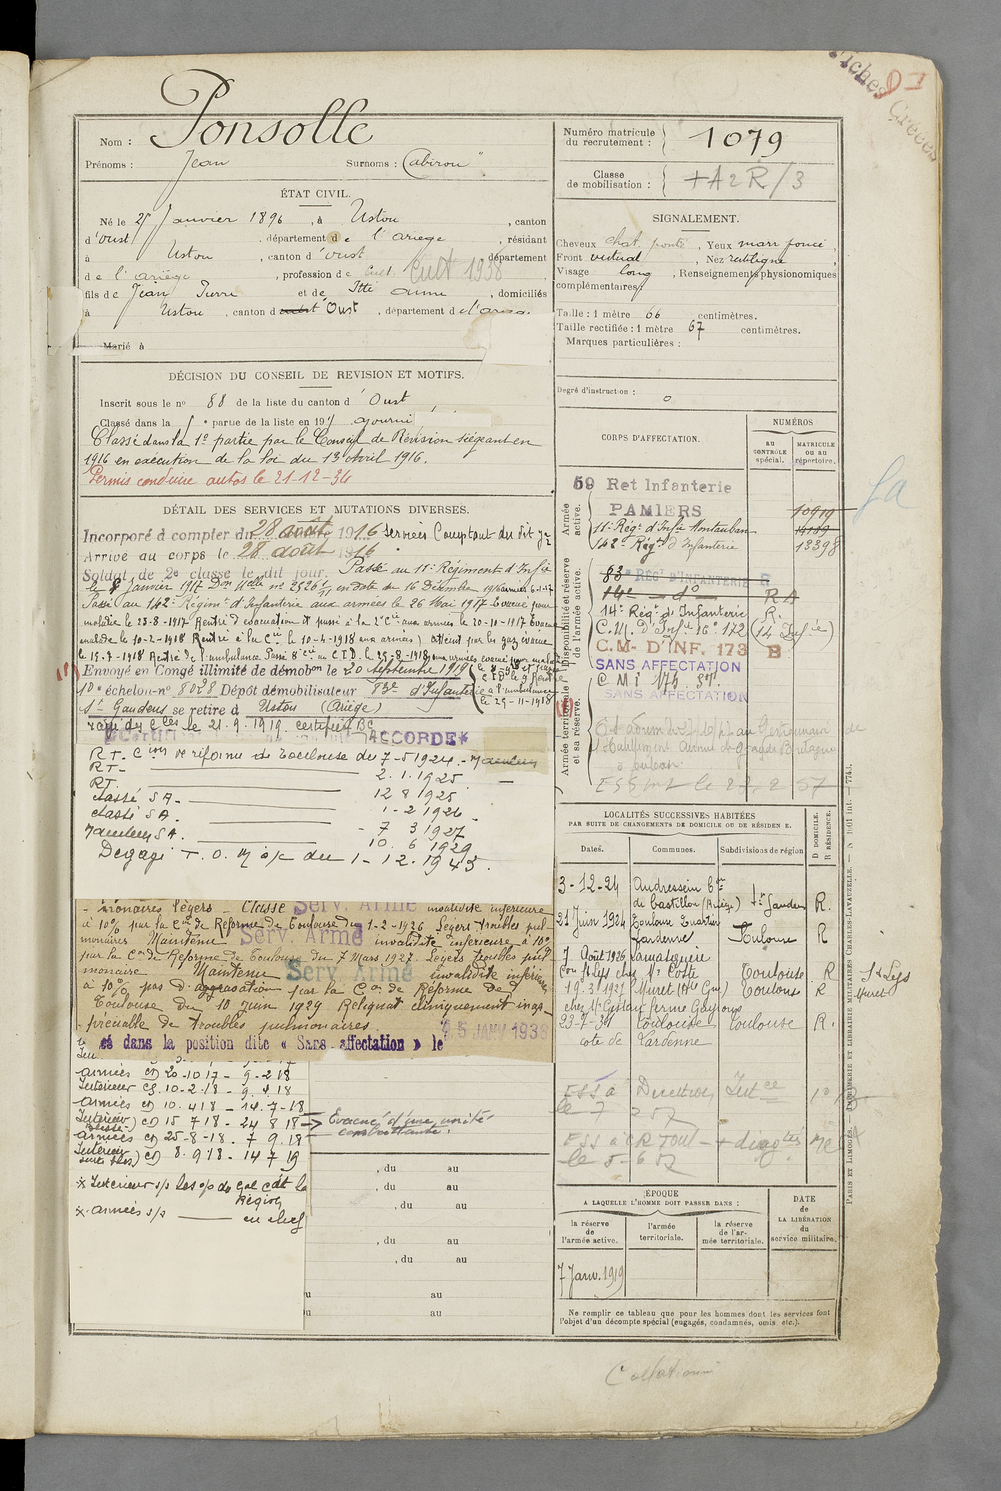 Fiches Créées
Nom : Ponsolle
Prénoms : Jean Surnoms : Cabirou "
ÉTAT CIVIL.
Né le 25 Janvier 1896, à Ustou, canton
d'Oust, département de l'Ariège, résidant
à Ustou, canton d'Oust département
de l'Ariège, profession de Cult Cult 1938
fils de Jean Pierre et de Itté Anne, domiciliés
à Ustou, canton d Oust, département de l'Ariège
Marié à
DÉCISION DU CONSEIL DE REVISION ET MOTIFS.
Inscrit sous le no 88 de la liste du canton d'Oust
Classé dans la partie de la liste en 191 ajourné
Classé dans la 1e partie par le Conseil de Révision siégeant en
1916 en exécution de la loi du 13 Avril 1916.
Permis conduire autos le 21-12-34
DÉTAIL DES SERVICES ET MUTATIONS DIVERSES.
Incorporé à compter du 28 août 1916 Services Comptant du dit jr
Arrivé au corps le 28 août 1916.
Soldat de 2e classe le dit jour. Passé au 11e Régiment d'Infie
le 8 Janvier 1917 Don Mlle no 2526 en date du 16 Décembre 1916
Passé au 142e Régimt d'Infanterie aux armées le 26 Mai 1917 Evacué pour
maladie le 23-8-1917 Rentré d'évacuation et passé à la 2e Cie aux armées le 20-10-1917 Evacué
malade le 10-2-1918 Rentré à la Cie le 10-4-1918 aux armées) atteint par les gaz évacué
le 15-7-1918 Rentré de l'ambulance Passé 8e Cie au C.I.D. le 25-8-1918
Envoyé en Congé illimité de démobon le 20 Septembre 1919
10e échelon-no 8028 Dépôt démobilisateur 83e d'Infanterie
St Gaudens se retire à Ustou (Ariège)
le 21.9.1919 certificat BC
ACCORDÉ
R.T. Cion de réforme de Toulouse du 7-5 1924 - Maintenu
R.T. 2.1.1925
RT. 12 8 1925
classé S A - 1-2 1926
classé S A. - 7 3 1927
Maintenu S A. 10. 6 1929
Dégagé T. O. M à/c du 1-12.1945.
monaires légers - Classé Serv. Armé invalidité inférieure
à 10% par la Con de Réforme de Toulouse du 1-2-1926 Légers troubles pul-
monaires Maintenu Serv. Armé invalidité inférieure à 10%
par la Con de Réforme de Toulouse du 7 Mars 1927. Légers troubles pul-
monaire Maintenu Serv. Armé invalidité inférieure
à 10% pas d'aggravation par la Con de Réforme de
Toulouse du 10 Juin 1929 Reliquat cliniquement inap-
préciable de troubles pulmonaires.
15 JANV 1938
cé dans la position dite « Sans affectation » le
armées CD 20-10-17 - 9-2 18
Intérieur CS. 10-2-18 - 9.4.18
Armées CD 10.4 18 - 14.7-18
Intérieur blessé) CD 15 7 18 - 24 8 18 → Evacué d'une unité
combattante.
armées CD 25-8-18. 7 9.18
Intérieur CD 8.9 18 - 14 7 19
* Intérieur s/s les o/o de Gal cdt la
Région
*. armées s/s —— en chef
, du au
, du au
, du au
, du au
, du au
u au
u au
Numéro matricule du recrutement : 1079
Classe de mobilisation : +A2R/3
SIGNALEMENT.
Cheveux chat. foncé, Yeux marr foncé,
Front vertical, Nez rectiligne,
Visage long, Renseignements physionomiques
complémentaires:
Taille : 1 mètre 66 centimètres.
Taille rectifiée : 1 mètre 67 centimètres.
Marques particulières :
Degré d'instruction : 0
CORPS D'AFFECTATION.
NUMÉROS
AU CONTRÔLE spécial.
MATRICULE ou au répertoire.
Armée active.
59 Ret Infanterie
PAMIERS 10919
11e Régt d'Infie Montauban
142e Régt d'Infanterie 13398
Disponibilité et réserve de l'armée active.
83e RÉGt D'INFANTERIE
14e - do R A
14e Régt d'Infanterie R.
C.M. D'Infie 16e 172 (14 Infie)
C.M- D'INF. 173 B
SANS AFFECTATION
C M I 173. ST.
SANS AFFECTATION
Armée territoriale et sa réserve.
LOCALITÉS SUCCESSIVES HABITÉES
PAR SUITE DE CHANGEMENTS DE DOMICILE OU DE RÉSIDEN E.
Dates. Communes. Subdivisions de région
D DOMICILE.
R RÉSIDENCE.
3-12-24 Audressein Con
de Castillon (Ariège) St Gaudens R.
21 Juin 1924 Toulouse Quartier
Lardenne. Toulouse R
7 Août 1926 Lamasquère
Con St Lys chez Mr Coste Toulouse R St Lys
19.3.1927 Muret (Hte Gne) Toulouse R Muret
chez Mr Gustau ferme Gaysous
23-7-34 Toulouse Toulouse R.
côte de Lardenne
ESS à Direction Intce
le 7 2 57
le 5-6 57
ÉPOQUE
A LAQUELLE L'HOMME DOIT PASSER DANS :
la réserve de l'armée active.
l'armée territoriale.
la réserve de l'armée territoriale.
DATE de LA LIBÉRATION du service militaire.
7 Janv. 1919
Ne remplir ce tableau que pour les hommes dont les services font
l'objet d'un décompte spécial (engagés, condamnés, omis, etc.).
PARIS ET LIMOGES. — IMPRIMERIE ET LIBRAIRIE MILITAIRES CHARLES-LAVAUZELLE.
Collationné